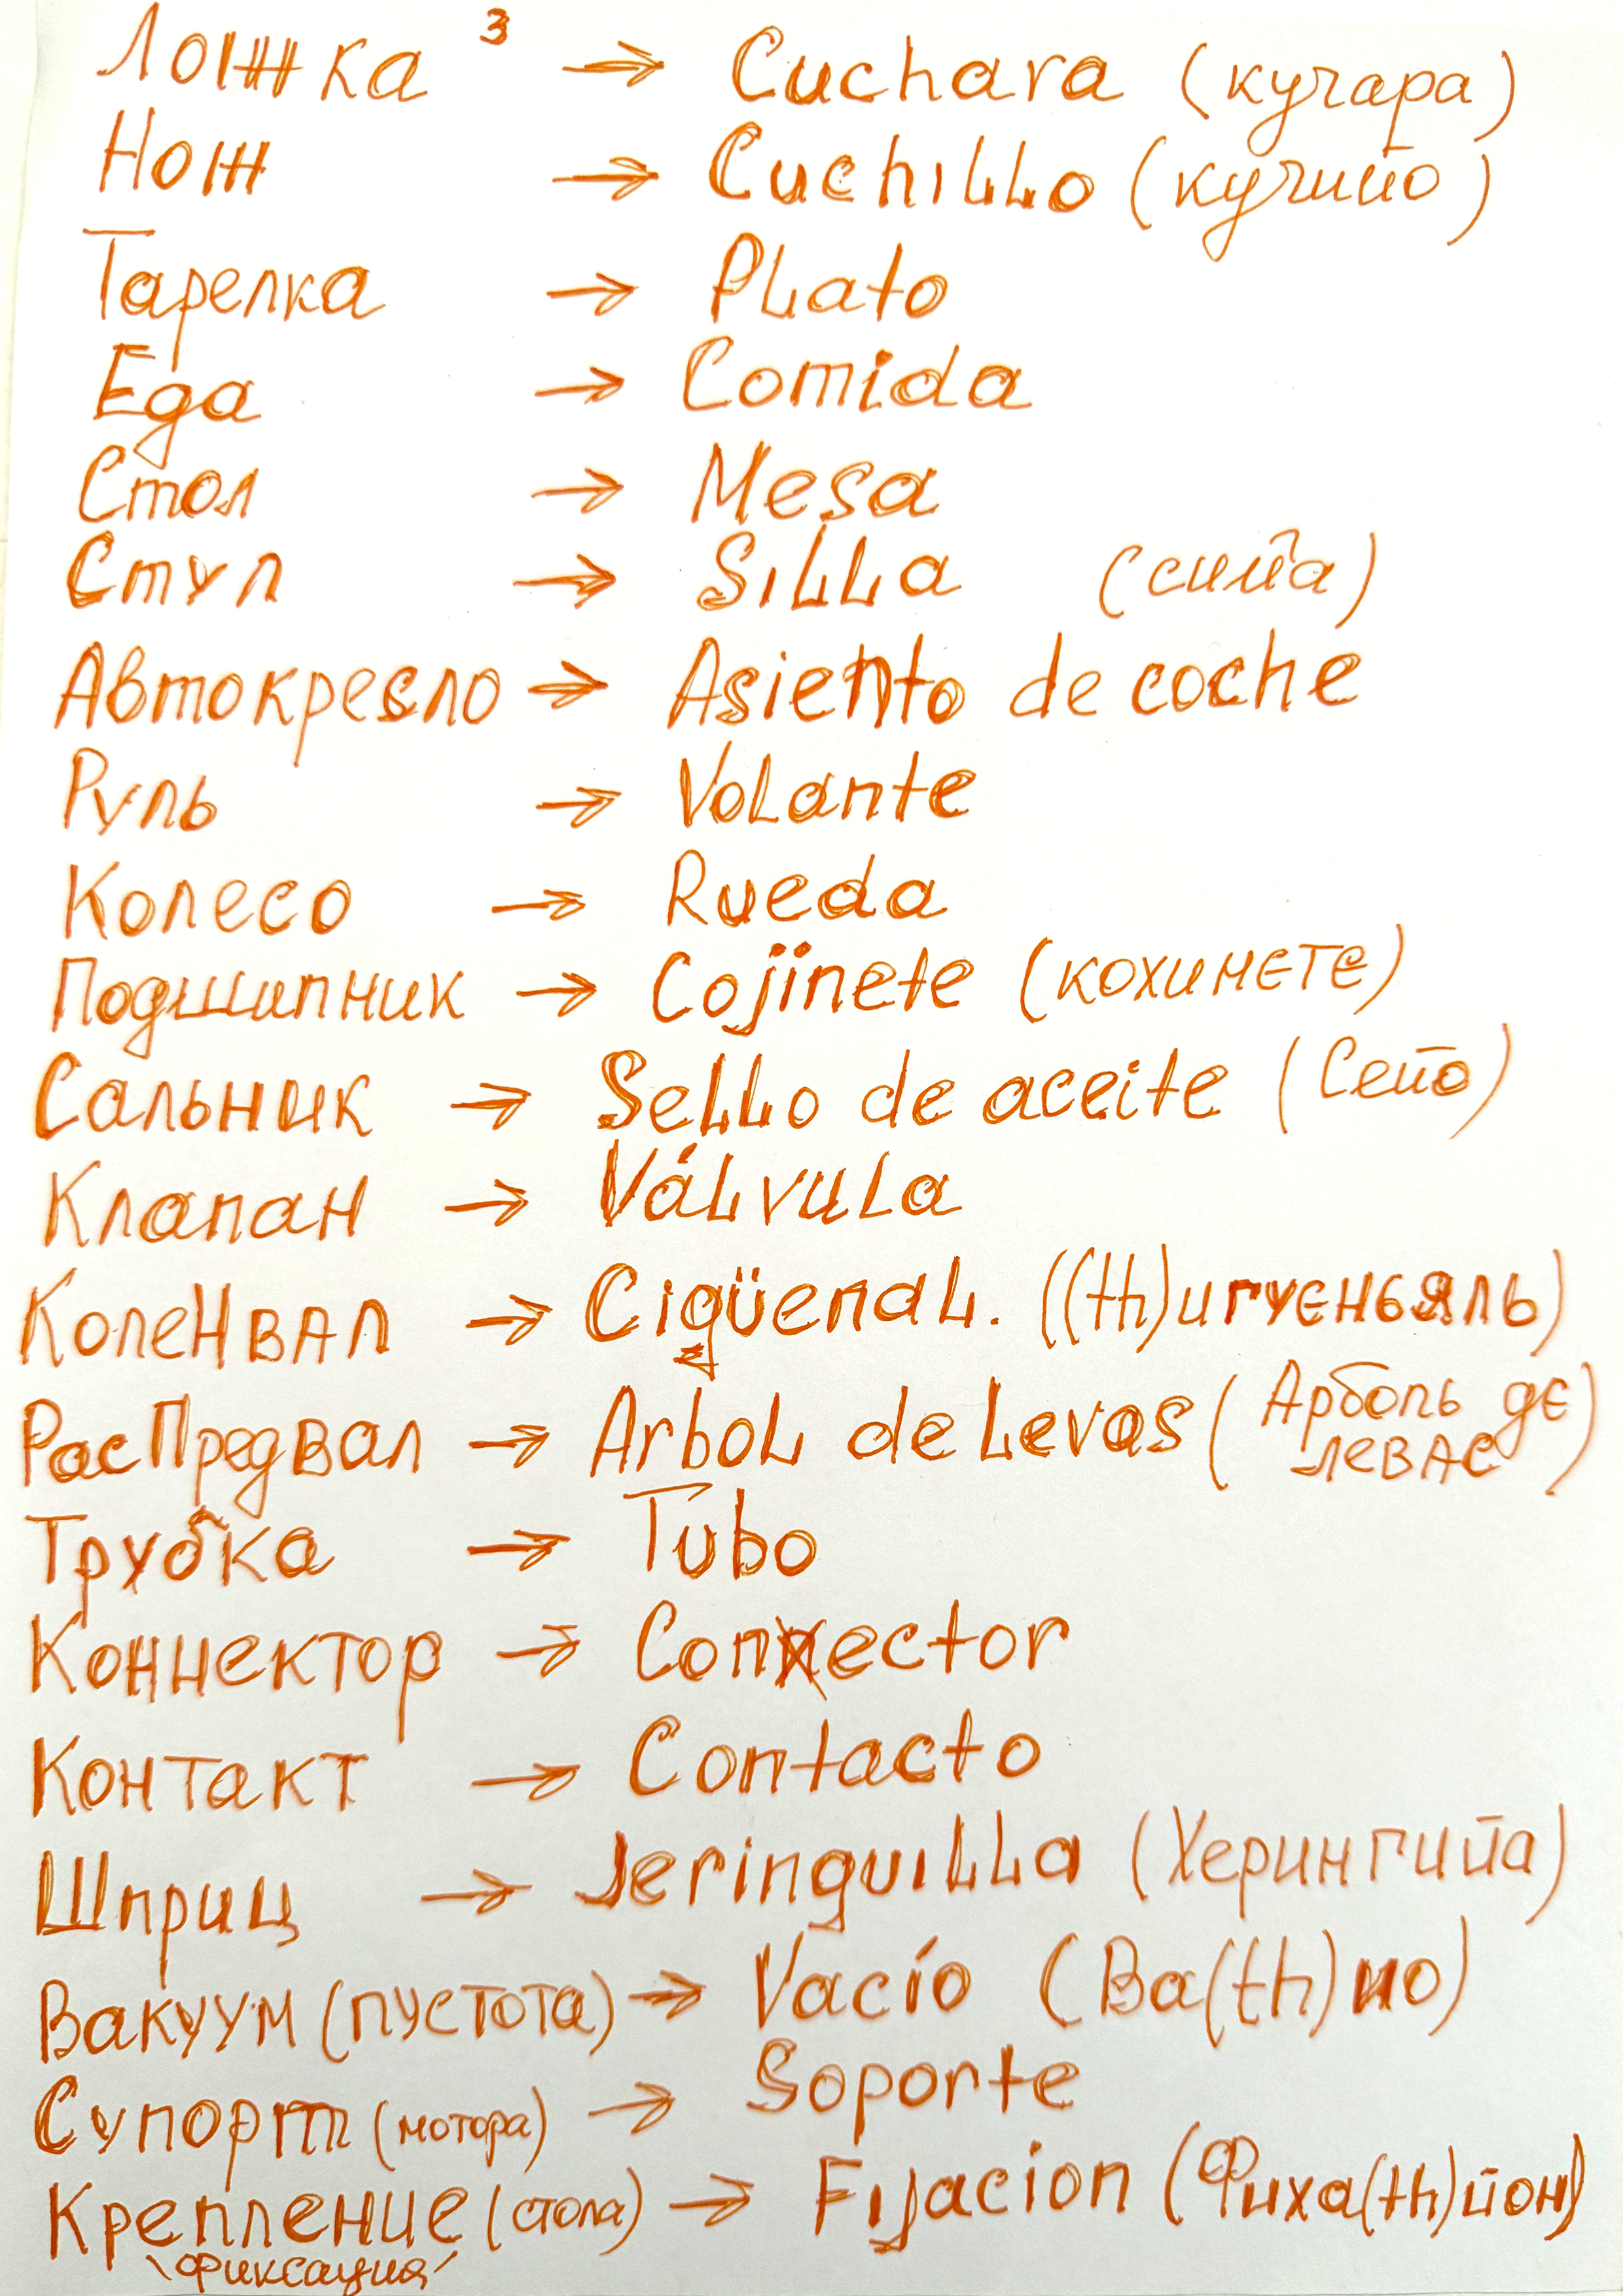 Ложка 3 → Cuchara (кучара)
Нож → Cuchillo (кучийо)
Тарелка → Plato
Еда → Comida
Стол → Mesa
Стул → Silla (сийа)
Автокресло → Asiento de coche
Руль → Volante
Колесо → Rueda
Подшипник → Cojinete (кохинете)
Сальник → Sello de aceite (Сейо)
Клапан → Válvula
Коленвал → Cigüenal. ((th)игуєньяль)
РасПредвал → Arbol de Levas (Арболь дє
левас)
Трубка → Tubo
Коннектор → Conector
Контакт → Contacto
Шприц → Jeringuilla (Херингийа)
Вакуум (пустота) → Vacío (Ва(th)ио)
Супорт (мотора) → Soporte
Крепление (стола) → Fijacion (Фиха(th)йон)
\фиксация/